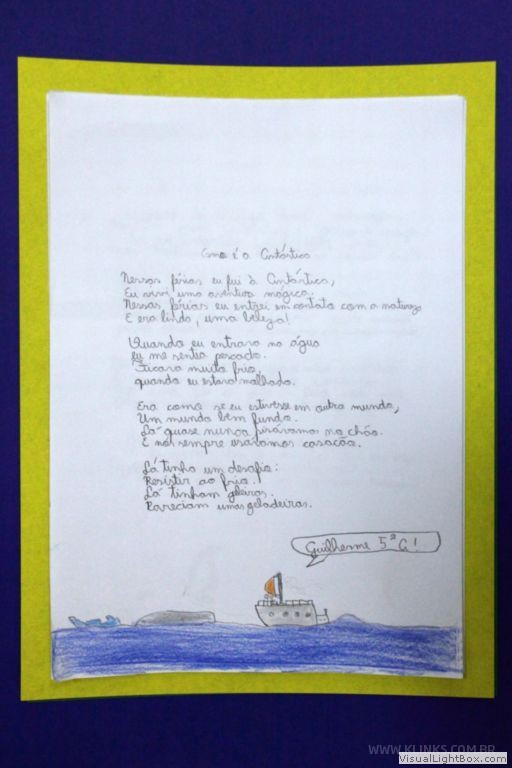 Como é a Antártica
Nessas férias eu fui à Antártica,
Eu vivi uma aventura mágica.
Nessas férias eu entrei em contato com a natureza
E era linda, uma beleza!
Quando eu entrava na água
eu me sentia pescado.
Ficava muito frio,
quando eu estava molhado.
Era como se eu estivesse em outro mundo,
Um mundo bem fundo.
Lá quase nunca pisávamos no chão.
E nós sempre usávamos casacão.
Lá tinha um desafio:
Resistir ao frio.
Lá tinham geleiras.
Pareciam umas geladeiras.
Guilherme 5ª C!
WWW.KLINKS.COM.BR
VisualLightBox.com